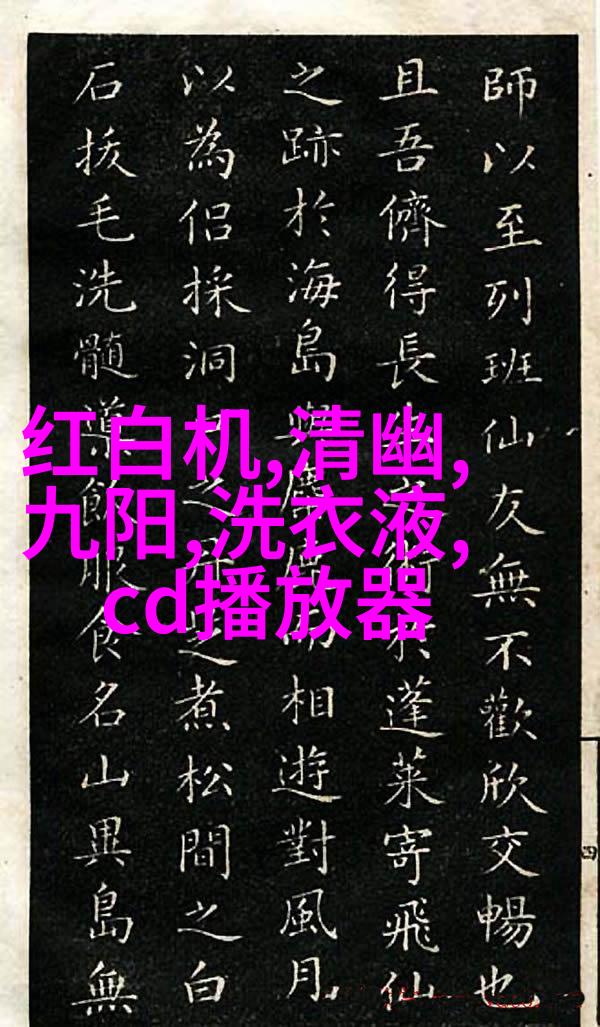 師以至列班仙友無不歡欣交暢也
且吾儕得長
術於蓬萊寄飛仙
之跡於海島與塵
相遊對風月
以為侶採洞
之
芝煮松間之白
石拔毛洗髓導
服食名山異島無
红白机,清幽,
九阳,洗衣液,
cd播放器